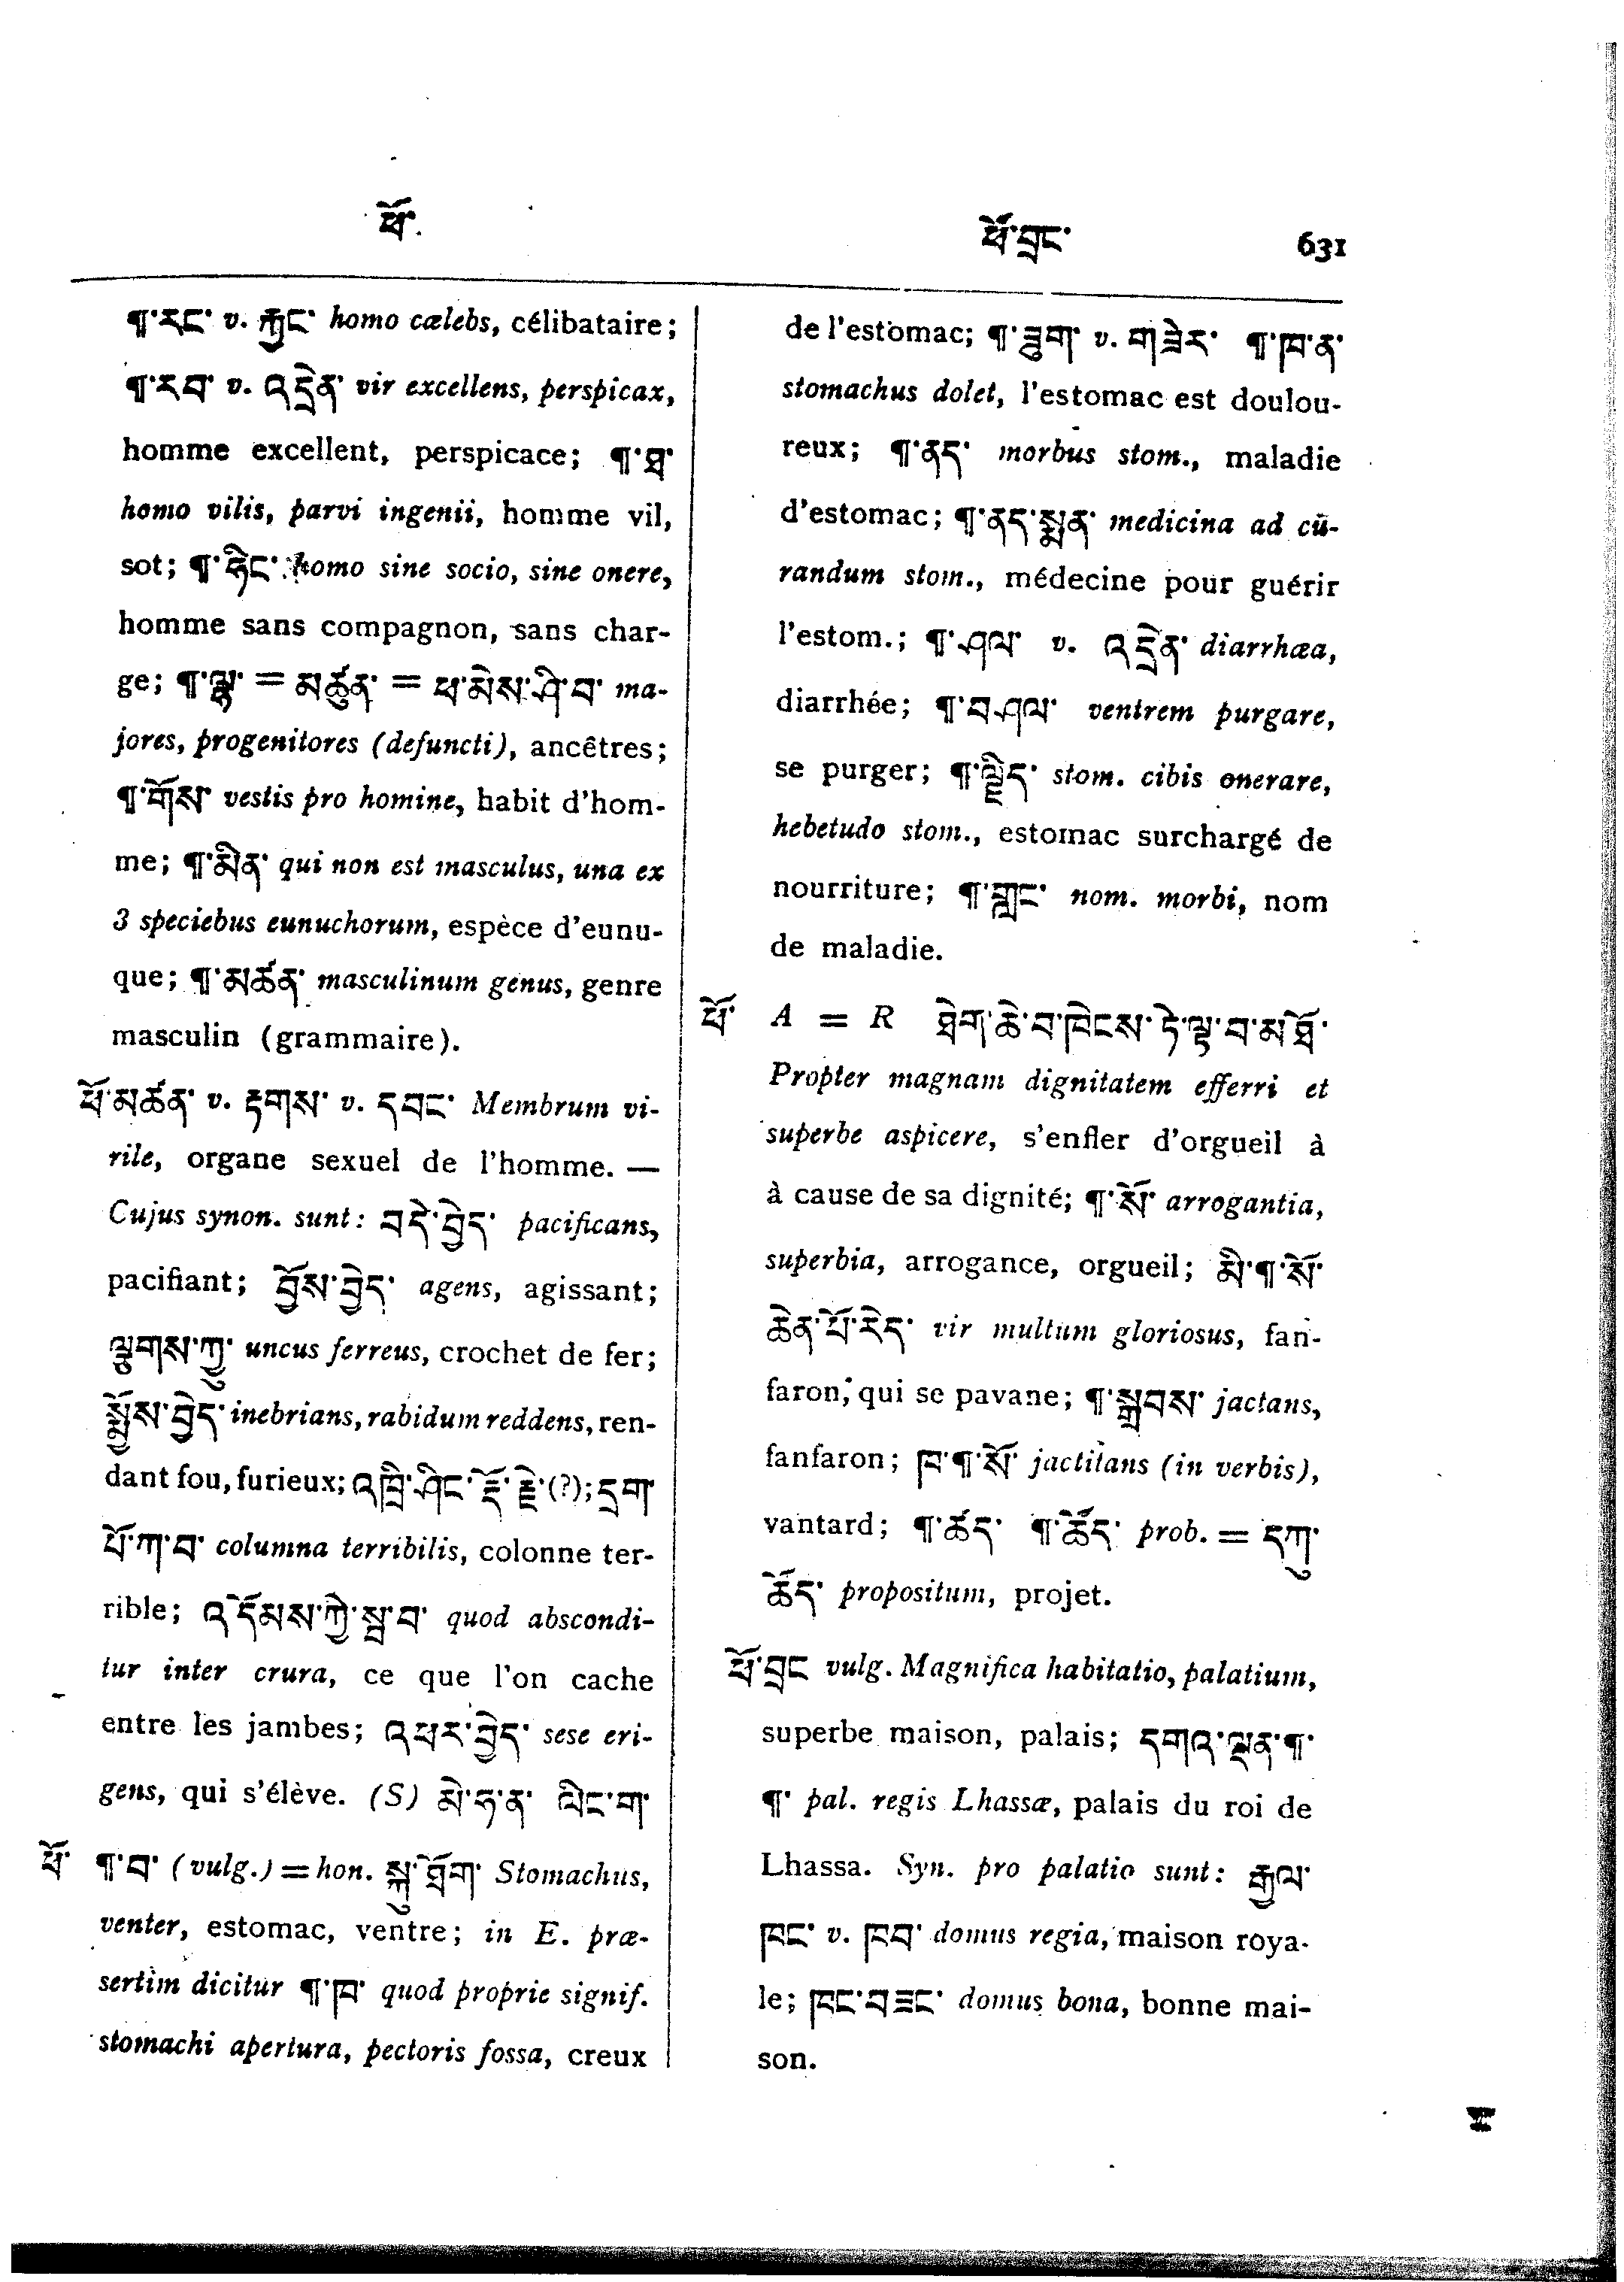 ཕོ་
ཕོ་བྲང་ 631
¶་རང་ v. རྐྱང་ homo cælebs, célibataire;
¶་རབ་ v. འདྲེན་ vir excellens, perspicax,
homme excellent, perspicace; ¶་ཐ་
homo vilis, parvi ingenii, homme vil,
sot; ¶་ཧྲེང་ homo sine socio, sine onere,
homme sans compagnon, sans char-
ge; ¶་ལྷ་ = མཚུན་ = ཕ་མེས་ཤི་བ་ ma-
jores, progenitores (defuncti), ancêtres;
¶་གོས་ vestis pro homine, habit d'hom-
me; ¶་མིན་ qui non est masculus, una ex
3 speciebus eunuchorum, espèce d'eunu-
que; ¶་མཚན་ masculinum genus, genre
masculin (grammaire).
ཕོ་མཚན་ v. རྟགས་ v. དབང་ Membrum vi-
rile, organe sexuel de l'homme. —
Cujus synon. sunt: བདེ་བྱེད་ pacificans,
pacifiant; བྱོས་བྱེད་ agens, agissant;
ལྕགས་ཀྱུ་ uncus ferreus, crochet de fer;
སྨྱོས་བྱེད་ inebrians, rabidum reddens, ren-
dant fou, furieux; འཁྲི་ཤིང་རྡོ་རྗེ་ (?); དྲག་
པོ་ཀ་བ་ columna terribilis, colonne ter-
rible; འདོམས་ཀྱི་སྦ་བ་ quod abscondi-
tur inter crura, ce que l'on cache
entre les jambes; འཕར་བྱེད་ sese eri-
gens, qui s'élève. (S) མེ་ཧ་ན་ ལིང་ག་
ཕོ་ ¶་བ་ (vulg.) = hon. སྐུ་གྲོག་ Stomachus,
venter, estomac, ventre; in E. præ-
sertim dicitur ¶་ཁ་ quod proprie signif.
stomachi apertura, pectoris fossa, creux
de l'estomac; ¶་ཟུག་ v. གཟེར་ ¶་ཁ་ན་
stomachus dolet, l'estomac est doulou-
reux; ¶་ནད་ morbus stom., maladie
d'estomac; ¶་ནད་སྨན་ medicina ad cu-
randum stom., médecine pour guérir
l'estom.; ¶་ཤལ་ v. འདྲེན་ diarrhœa,
diarrhée; ¶་བཤལ་ ventrem purgare,
se purger; ¶་ལྗིད་ stom. cibis onerare,
hebetudo stom., estomac surchargé de
nourriture; ¶་གླང་ nom. morbi, nom
de maladie.
ཕོ་ A = R ཐེག་ཆེ་བ་ཁེངས་ཏེ་ལྟ་བ་མཐོ་
Propter magnam dignitatem efferri et
superbe aspicere, s'enfler d'orgueil à
à cause de sa dignité; ¶་སོ་ arrogantia,
superbia, arrogance, orgueil; མི་¶་སོ་
ཆེན་པོ་རེད་ vir multum gloriosus, fan-
faron, qui se pavane; ¶་སྒྲབས་ jactans,
fanfaron; ཁ་¶་སོ་ jactitans (in verbis),
vantard; ¶་ཚད་ ¶་ཚོད་ prob. = དཀུ་
ཚོད་ propositum, projet.
ཕོ་བྲང vulg. Magnifica habitatio, palatium,
superbe maison, palais; དགའ་ལྡན་¶་
¶་ pal. regis Lhassæ, palais du roi de
Lhassa. Syn. pro palatio sunt: རྒྱལ་
ཁང་ v. ཁབ་ domus regia, maison roya-
le; ཁང་བཟང་ domus bona, bonne mai-
son.